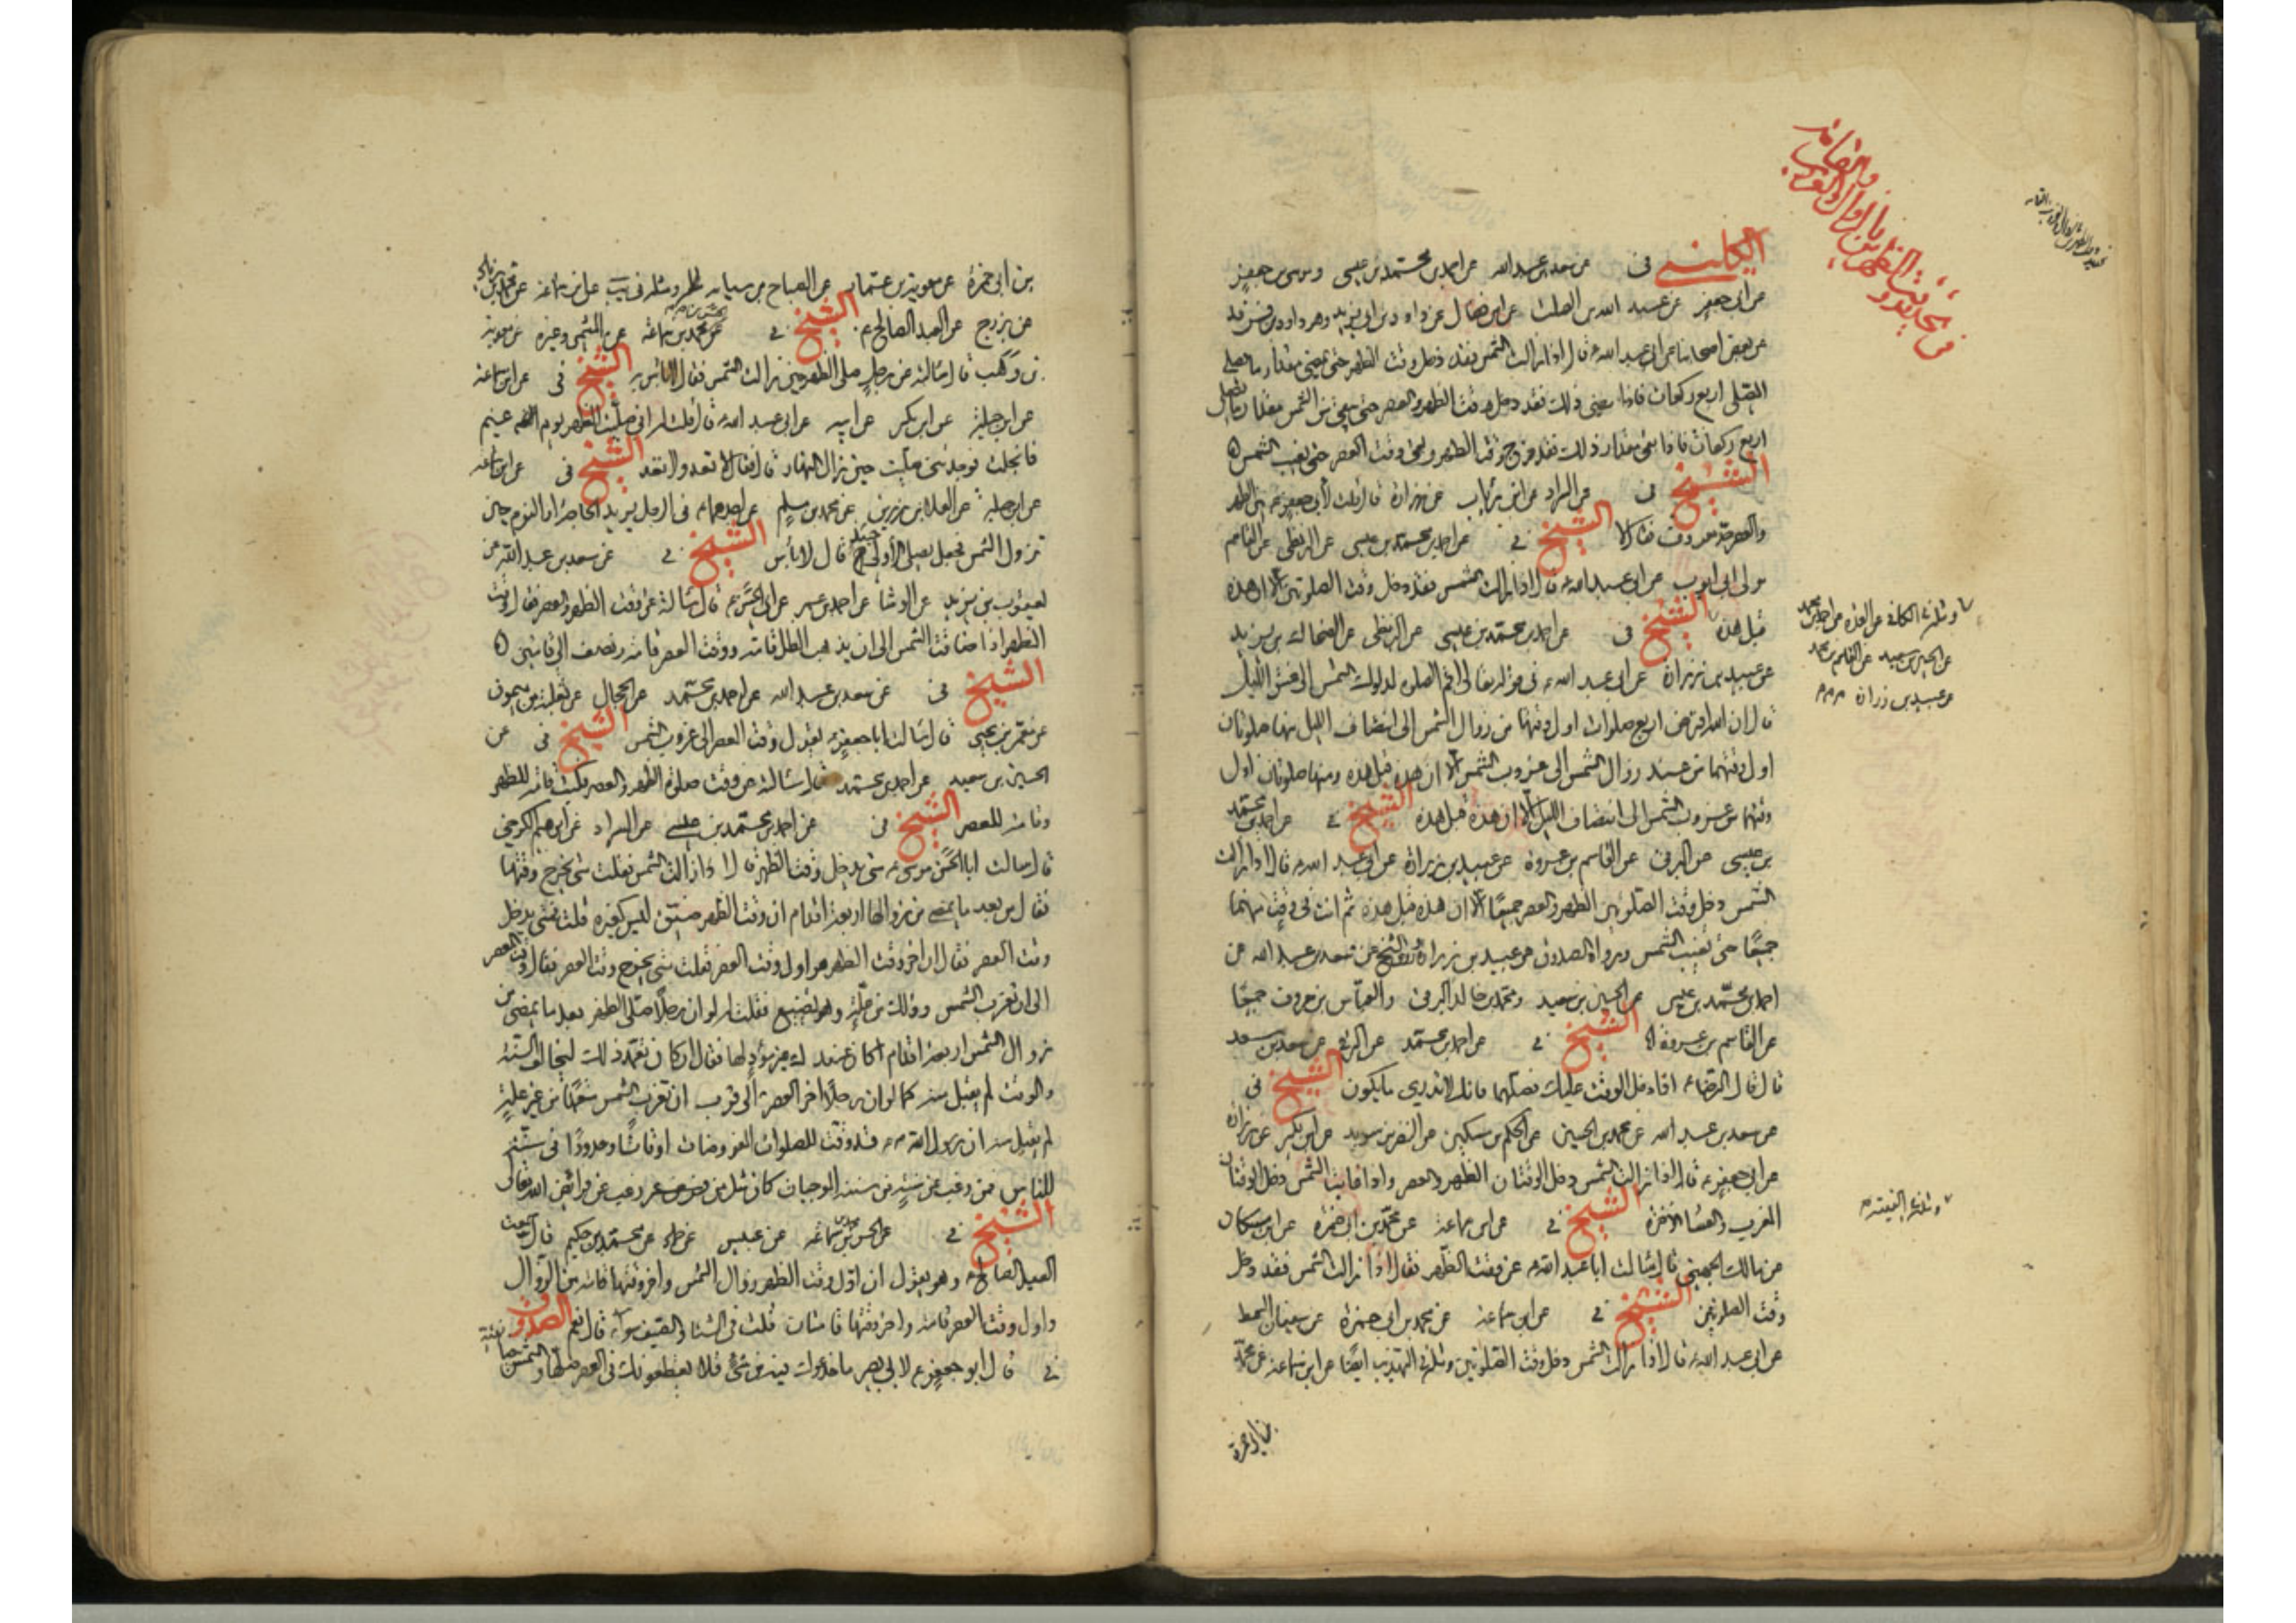 الكليني في عن سعد بن عبد الله عن احمد بن محمد بن عيسى وموسى بن جعفر
عن ابي جعفر عن عبد الله بن الصلت عن ابن فضال عن داود بن ابي يزيد وهو داود بن فرقد
عن بعض اصحابنا عن ابي عبد الله ع قال اذا زالت الشمس فقد دخل وقت الظهر حتى يمضي مقدار ما يصلي
المصلي اربع ركعات فاذا مضى ذلك فقد دخل وقت الظهر والعصر حتى يبقى من الشمس مقدار ما يصلي
اربع ركعات فاذا بقي مقدار ذلك فقد خرج وقت الظهر وبقي وقت العصر حتى تغيب الشمس
الشيخ في عن السراد عن ابن رئاب عن زرارة قال قلت لأبي جعفر ع بين الظهر
والعصر حد معروف فقال لا الشيخ في عن احمد بن محمد بن عيسى عن البزنطي عن القاسم
مولى ابي ايوب عن ابي عبد الله ع قال اذا زالت الشمس فقد دخل وقت الصلوتين الا ان هذه
قبل هذه الشيخ في عن احمد بن محمد بن عيسى عن البزنطي عن الضحاك بن يزيد
عن عبيد بن زرارة عن ابي عبد الله ع في قوله تعالى اقم الصلوة لدلوك الشمس الى غسق الليل
قال ان الله افترض اربع صلوات اول وقتها من زوال الشمس الى انتصاف الليل منها صلوتان
اول وقتهما من عند زوال الشمس الى غروب الشمس الا ان هذه قبل هذه ومنها صلوتان اول
وقتهما من غروب الشمس الى انتصاف الليل الا ان هذه قبل هذه الشيخ في عن احمد بن محمد
بن عيسى عن البرقي عن القاسم بن عروة عن عبيد بن زرارة عن ابي عبد الله ع قال اذا زالت
الشمس دخل وقت الصلوتين الظهر والعصر جميعًا الا ان هذه قبل هذه ثم انت في وقت منهما
جميعًا حتى تغيب الشمس ورواه الصدوق عن عبيد بن زرارة الشيخ عن سعد بن عبد الله عن
احمد بن محمد بن عيسى عن الحسين بن سعيد ومحمد بن خالد البرقي والعباس بن معروف جميعًا
عن القاسم بن عروة الشيخ في عن احمد بن محمد عن البرقي عن سعد بن سعد
قال قال الرضا ع اذا دخل الوقت عليك فصلهما فانك لا تدري ما يكون الشيخ في
عن سعد بن عبد الله عن محمد بن الحسين عن الحكم بن مسكين عن النضر بن سويد عن ابن بكير عن زرارة
عن ابي جعفر ع قال اذا زالت الشمس دخل الوقتان الظهر والعصر واذا غابت الشمس دخل الوقتان
المغرب والعشاء الآخرة الشيخ في عن ابن سماعة عن محمد بن ابي حمزة عن ابن مسكان
عن مالك الجهني قال سالت ابا عبد الله ع عن وقت الظهر فقال اذا زالت الشمس فقد دخل
وقت الصلوتين الشيخ في عن ابن سماعة عن محمد بن ابي حمزة عن سفيان السمط
عن ابي عبد الله ع قال اذا زالت الشمس دخل وقت الصلوتين
ومثله في الكافي عن العدة عن احمد بن محمد
عن الحسين بن سعيد عن القاسم بن محمد
عن عبيد بن زرارة
بن ابي حمزة
بن ابي حمزة عن معوية بن عمار عن الصباح بن سيابه
عن بزرج عن العبد الصالح ع الشيخ في عن محمد بن سماعة عن الميثمي وغيره عن معوية
بن وهب قال سالته عن رجل صلى الظهر حين زالت الشمس فقال لا باس به الشيخ في عن ابن سماعة
عن ابن جبلة عن ابن بكير عن ابيه عن ابي عبد الله ع قال قلت له اني صليت الظهر يوم غيم
فانجلت فوجدتني صليت حين زال النهار قال فقال لا تعد ولا تعد الشيخ في عن ابن سماعة
عن ابن جبلة عن العلاء بن رزين عن محمد بن مسلم عن احدهما ع في الرجل يريد الحاجة او النوم حين
تزول الشمس فجعل يصلي الأولى حينئذ قال لا باس الشيخ في عن سعد بن عبد الله عن
يعقوب بن يزيد عن الوشا عن احمد بن عمر عن ابي الحسن ع قال سالته عن وقت الظهر والعصر فقال وقت
الظهر اذا زاغت الشمس الى ان يذهب الظل قامة ووقت العصر قامة ونصف الى قامتين
الشيخ في عن سعد بن عبد الله عن احمد بن محمد عن الحجال عن ثعلبة بن ميمون
عن معمر بن يحيى قال سالت ابا جعفر ع يقول وقت العصر الى غروب الشمس الشيخ في عن
الحسين بن سعيد عن احمد بن محمد قال سالته عن وقت صلوة الظهر والعصر فكتب قامة للظهر
وقامة للعصر الشيخ في عن احمد بن محمد بن عيسى عن السراد عن ابراهيم الكرخي
قال سالت ابا الحسن موسى ع متى يدخل وقت الظهر قال اذا زالت الشمس فقلت متى يخرج وقتها
فقال من بعد ما يمضي من زوالها اربعة اقدام ان وقت الظهر ضيق ليس كغيره قلت فمتى يدخل
وقت العصر فقال ان اخر وقت الظهر هو اول وقت العصر فقلت متى يخرج وقت العصر فقال وقت العصر
الى ان تغرب الشمس وذلك من علة وهو تضييع فقلت له لو ان رجلًا صلى الظهر بعد ما يمضي من
زوال الشمس اربعة اقدام اكان عندك غير مؤد لها فقال ان كان تعمد ذلك ليخالف السنة
والوقت لم يقبل منه كما لو ان رجلًا اخر العصر الى قرب ان تغرب الشمس متعمدًا من غير علة
لم يقبل منه ان رسول الله ص قد وقت للصلوات المفروضات اوقاتًا وحدودًا في سنته
للناس فمن رغب عن سنة من سننه الموجبات كان مثل من رغب عن فرائض الله تعالى
الشيخ في عن الحسن بن محمد بن سماعة عن عبيس عن حماد عن محمد بن حكيم قال سمعت
العبد الصالح ع وهو يقول ان اول وقت الظهر زوال الشمس واخر وقتها قامة من الزوال
واول وقت العصر قامة واخر وقتها قامتان قلت في الشتا والصيف سواء قال نعم الصدوق
في قال ابو جعفر ع لابي بصير ما خدعوك فيه من شئ فلا يخدعونك في العصر صلها والشمس بيضاء نقية